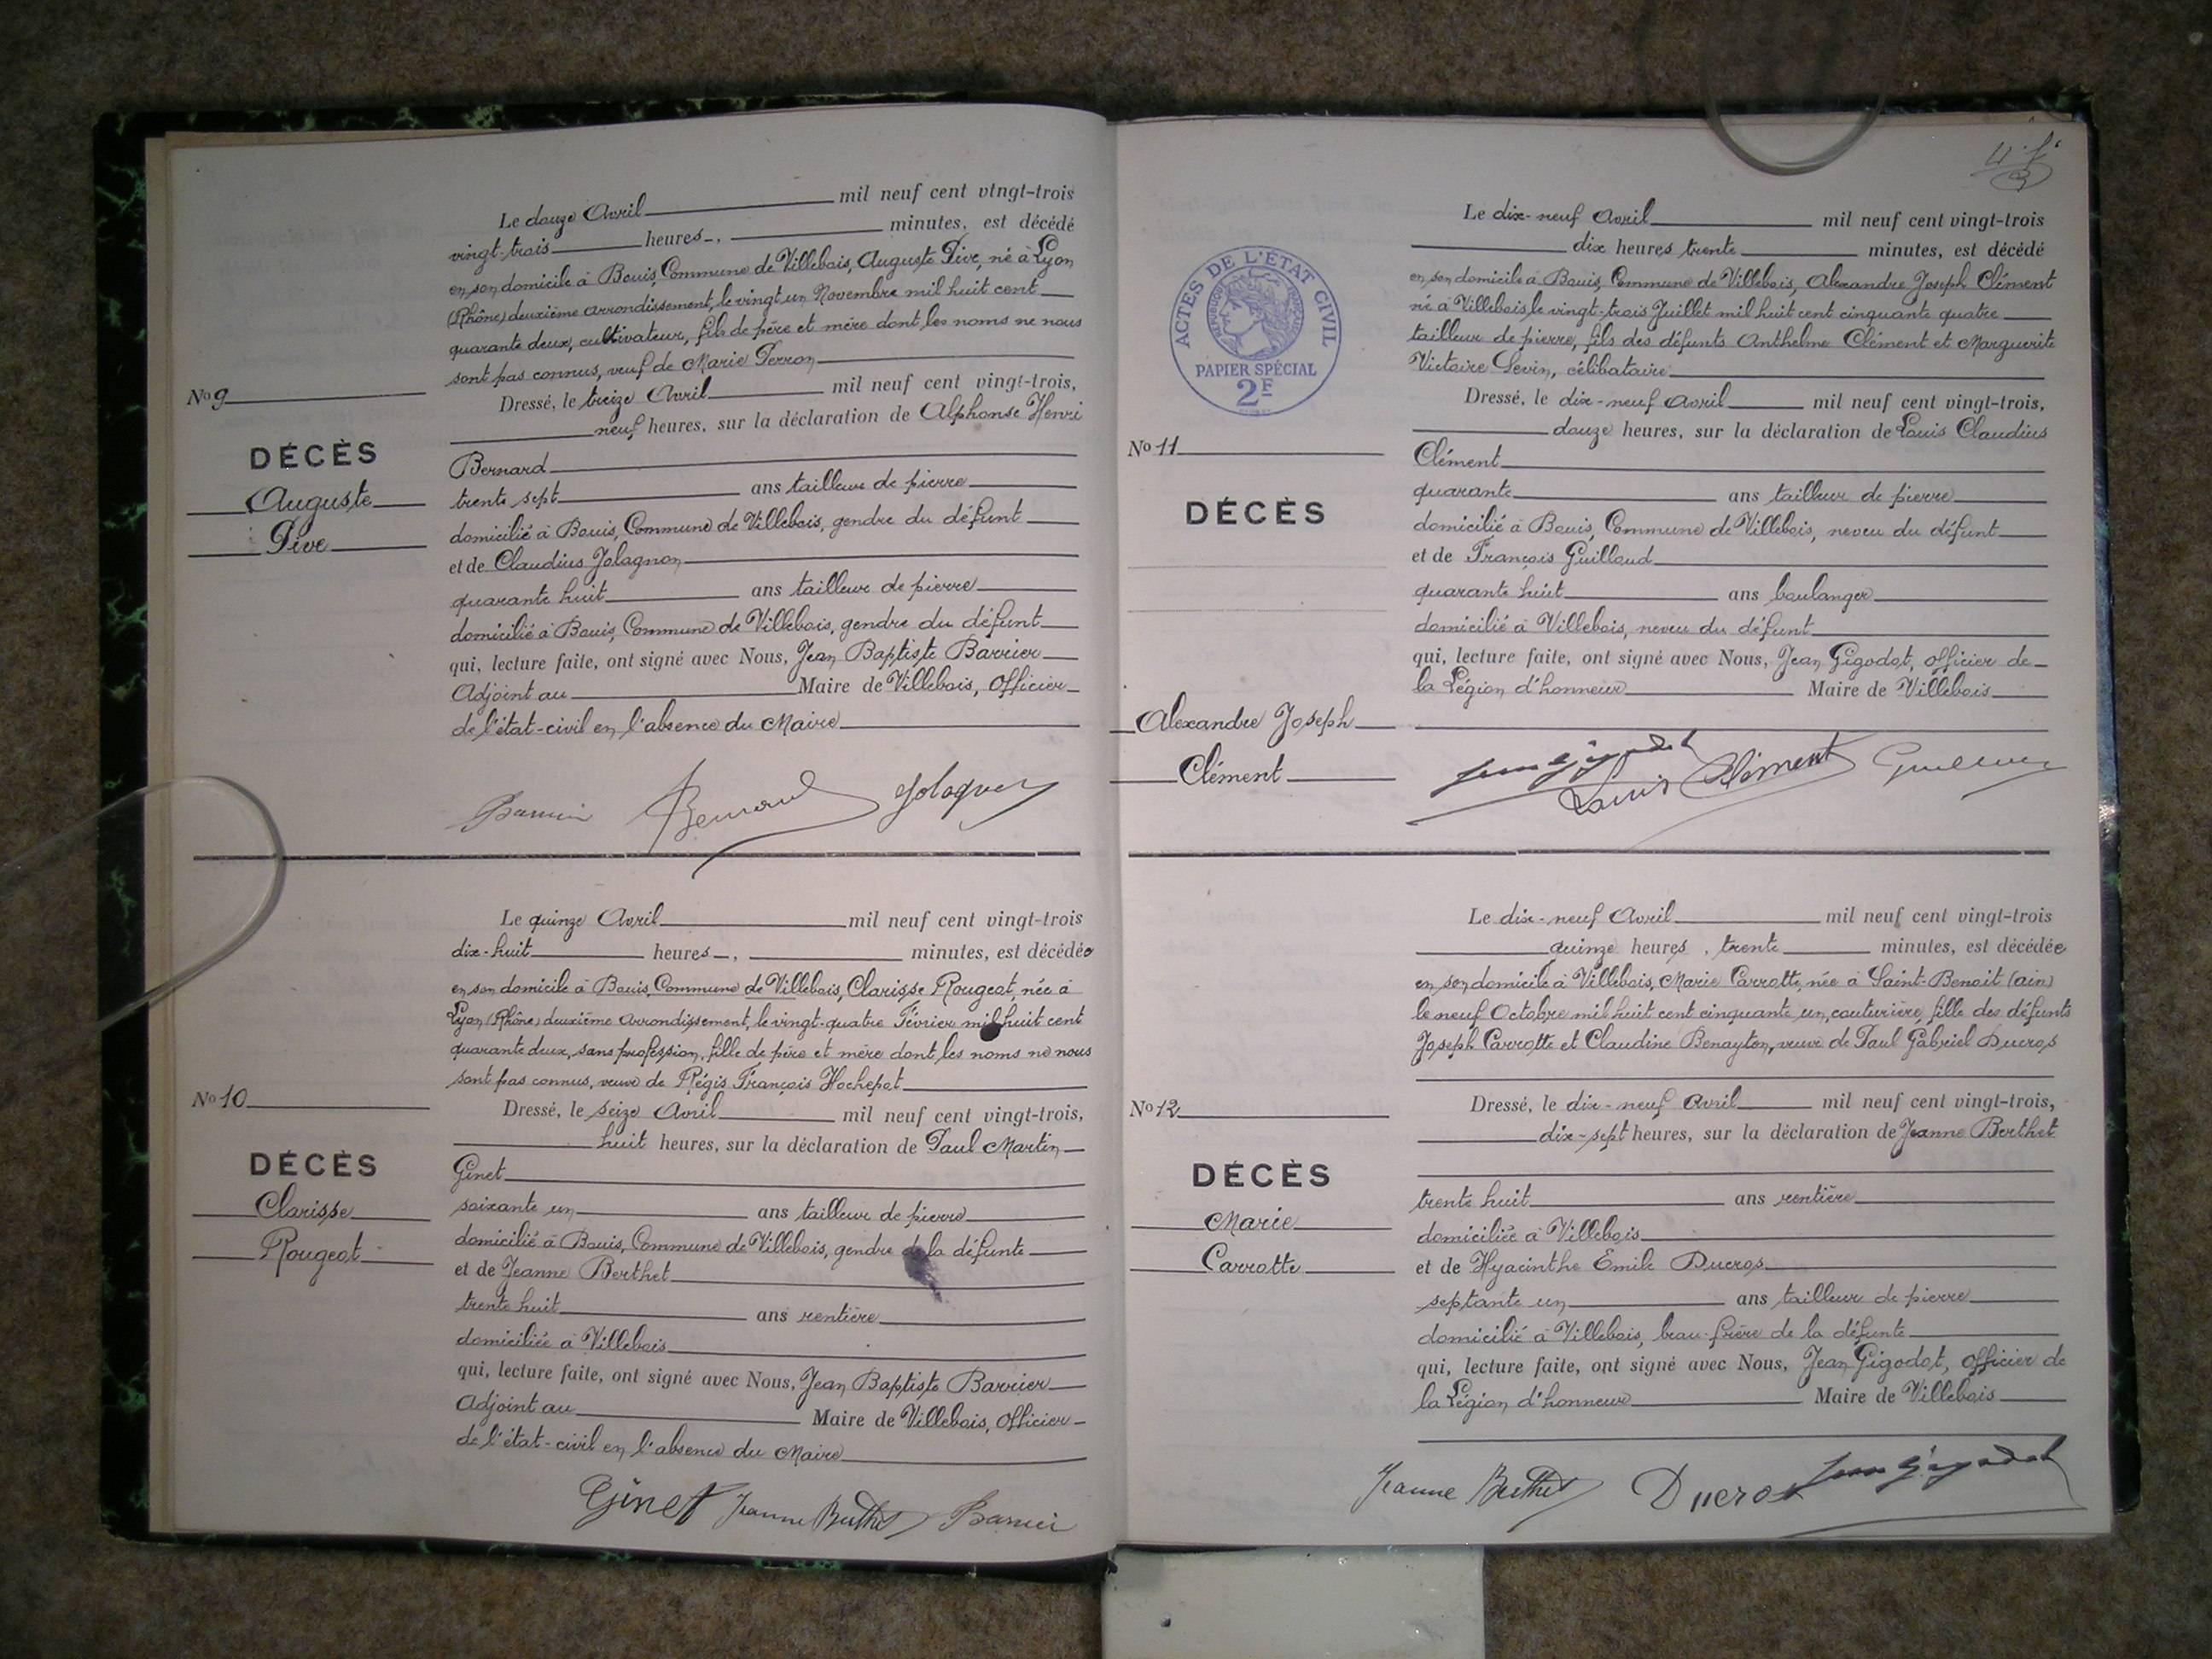 Le douze Avril mil neuf cent vingt-trois
vingt-trois heures , minutes, est décédé
en son domicile à Bouis, Commune de Villebois, Auguste Pive, né à Lyon
(Rhône) deuxième arrondissement, le vingt un Novembre mil huit cent
quarante deux, cultivateur, fils de père et mère dont les noms ne nous
sont pas connus, veuf de Marie Perron
No 9
Dressé, le treize Avril mil neuf cent vingt-trois,
neuf heures, sur la déclaration de Alphonse Henri
DÉCÈS
Bernard
Auguste
trente sept ans tailleur de pierre
Pive
domicilié à Bouis, Commune de Villebois, gendre du défunt
et de Claudius Jolagnon
quarante huit ans tailleur de pierre
domicilié à Bouis, Commune de Villebois, gendre du défunt
qui, lecture faite, ont signé avec Nous, Jean Baptiste Barrier
Adjoint au Maire de Villebois, Officier
de l'état-civil en l'absence du Maire
Barrier Bernard Jolagnon
Le quinze Avril mil neuf cent vingt-trois
dix-huit heures , minutes, est décédée
en son domicile à Bouis, Commune de Villebois, Clarisse Rougeot, née à
Lyon (Rhône) deuxième arrondissement, le vingt-quatre Février mil huit cent
quarante deux, sans profession, fille de père et mère dont les noms ne nous
sont pas connus, veuve de Régis François Hochepot
No 10
Dressé, le seize Avril mil neuf cent vingt-trois,
huit heures, sur la déclaration de Paul Martin
DÉCÈS
Ginet
Clarisse
soixante un ans tailleur de pierre
Rougeot
domicilié à Bouis, Commune de Villebois, gendre de la défunte
et de Jeanne Berthet
trente huit ans rentière
domiciliée à Villebois
qui, lecture faite, ont signé avec Nous, Jean Baptiste Barrier
Adjoint au Maire de Villebois, Officier
de l'état-civil en l'absence du Maire
Ginet Jeanne Berthet Barrier
Le dix-neuf Avril mil neuf cent vingt-trois
dix heures trente minutes, est décédé
en son domicile à Bouis, Commune de Villebois, Alexandre Joseph Clément
né à Villebois, le vingt-trois Juillet mil huit cent cinquante quatre
tailleur de pierre, fils des défunts Anthelme Clément et Marguerite
Victoire Sevin, célibataire
ACTES DE L'ÉTAT CIVIL
RÉPUBLIQUE FRANÇAISE
PAPIER SPÉCIAL
2F
Dressé, le dix-neuf Avril mil neuf cent vingt-trois,
douze heures, sur la déclaration de Louis Claudius
No 11
Clément
quarante ans tailleur de pierre
DÉCÈS
domicilié à Bouis, Commune de Villebois, neveu du défunt
et de François Guilloud
quarante huit ans boulanger
domicilié à Villebois, neveu du défunt
qui, lecture faite, ont signé avec Nous, Jean Gigodot, officier de
la Légion d'honneur Maire de Villebois
Alexandre Joseph
Clément
Jean Gigodot Louis Clément Guilloud
Le dix-neuf Avril mil neuf cent vingt-trois
quinze heures , trente minutes, est décédée
en son domicile à Villebois, Marie Carrotte, née à Saint-Benoit (ain)
le neuf Octobre mil huit cent cinquante un, couturière, fille des défunts
Joseph Carrotte et Claudine Benayton, veuve de Paul Gabriel Ducros
No 12
Dressé, le dix-neuf Avril mil neuf cent vingt-trois,
dix-sept heures, sur la déclaration de Jeanne Berthet
DÉCÈS
trente huit ans rentière
Marie
domiciliée à Villebois
Carrotte
et de Hyacinthe Emile Ducros
septante un ans tailleur de pierre
domicilié à Villebois, beau-frère de la défunte
qui, lecture faite, ont signé avec Nous, Jean Gigodot, officier de
la Légion d'honneur Maire de Villebois
Jeanne Berthet Ducros Jean Gigodot